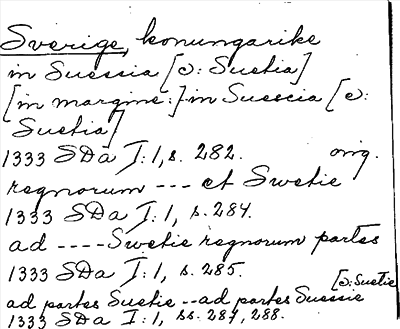 Sverige, konungarike
in Suessia [ɔ: Suetia]
[in margine:] in Suescia [ɔ:
Suetia]
1333 SDa I: 1, s. 282. orig.
regnorum --- et Swetie
1333 SDa I: 1, s. 284.
ad ---- Swetie regnorum partes
1333 SDa I: 1, s. 285.
[ɔ: Suetie
ad partes Suetie -- ad partes Suessie
1333 SDa I: 1, ss. 287, 288.